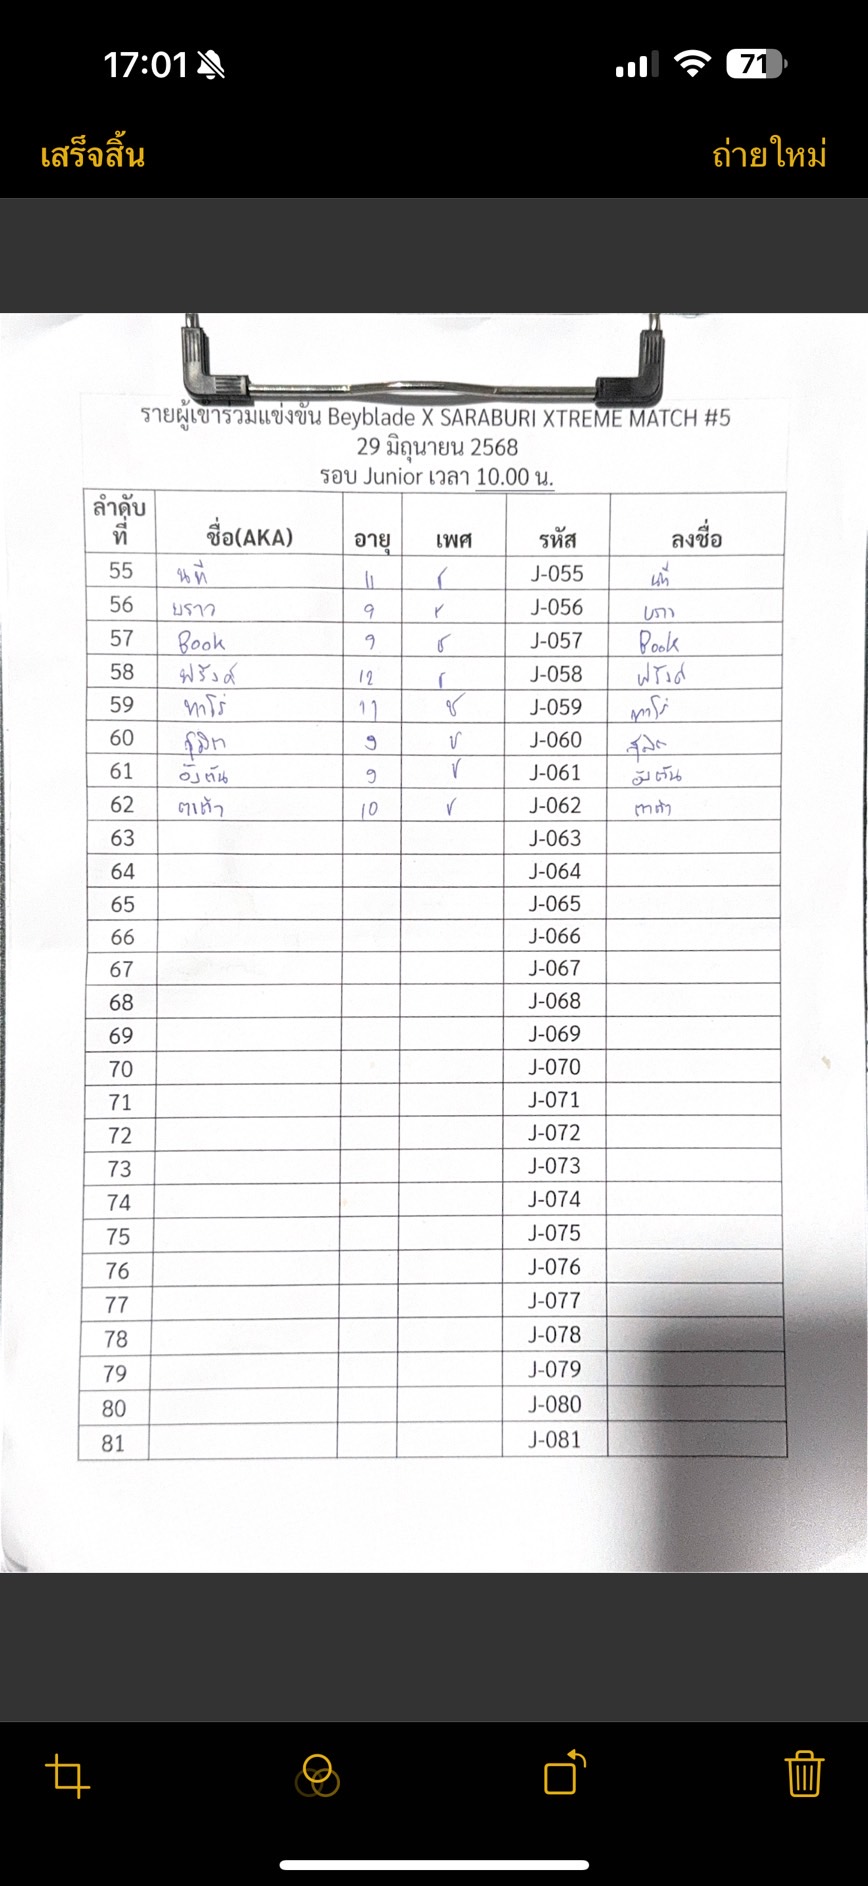 17:01 71
เสร็จสิ้น ถ่ายใหม่
รายผู้เข้าร่วมแข่งขัน Beyblade X SARABURI XTREME MATCH #5
29 มิถุนายน 2568
รอบ Junior เวลา 10.00 น.
ลำดับที่ ชื่อ(AKA) อายุ เพศ รหัส ลงชื่อ
55 นที 11 ช J-055 นที
56 บราว 9 ช J-056 บราว
57 Book 9 ช J-057 Book
58 ฟรังค์ 12 ช J-058 ฟรังค์
59 ทาโร่ 11 ช J-059 ทาโร่
60 9 ช J-060
61 อังตัน 9 ช J-061 อังตัน
62 10 ช J-062
63 J-063
64 J-064
65 J-065
66 J-066
67 J-067
68 J-068
69 J-069
70 J-070
71 J-071
72 J-072
73 J-073
74 J-074
75 J-075
76 J-076
77 J-077
78 J-078
79 J-079
80 J-080
81 J-081